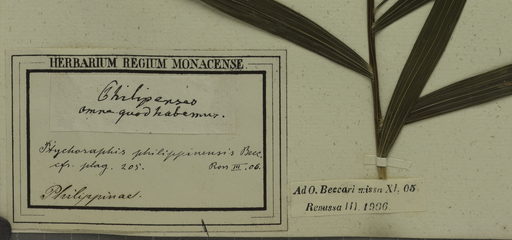 HERBARIUM REGIUM MONACENSE.
Philipinae
omne quod habemus.
Ptychoraphis philippinensis Becc.
cfr. plag. 205. Ros III. 06.
Philippinae.
Ad O. Beccari missa XI, 05.
Remissa III. 1906.